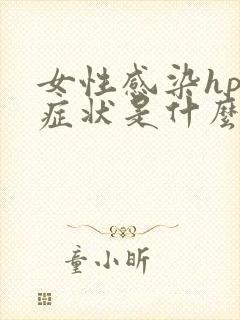 女性感染hp
症状是什麼
童小昕